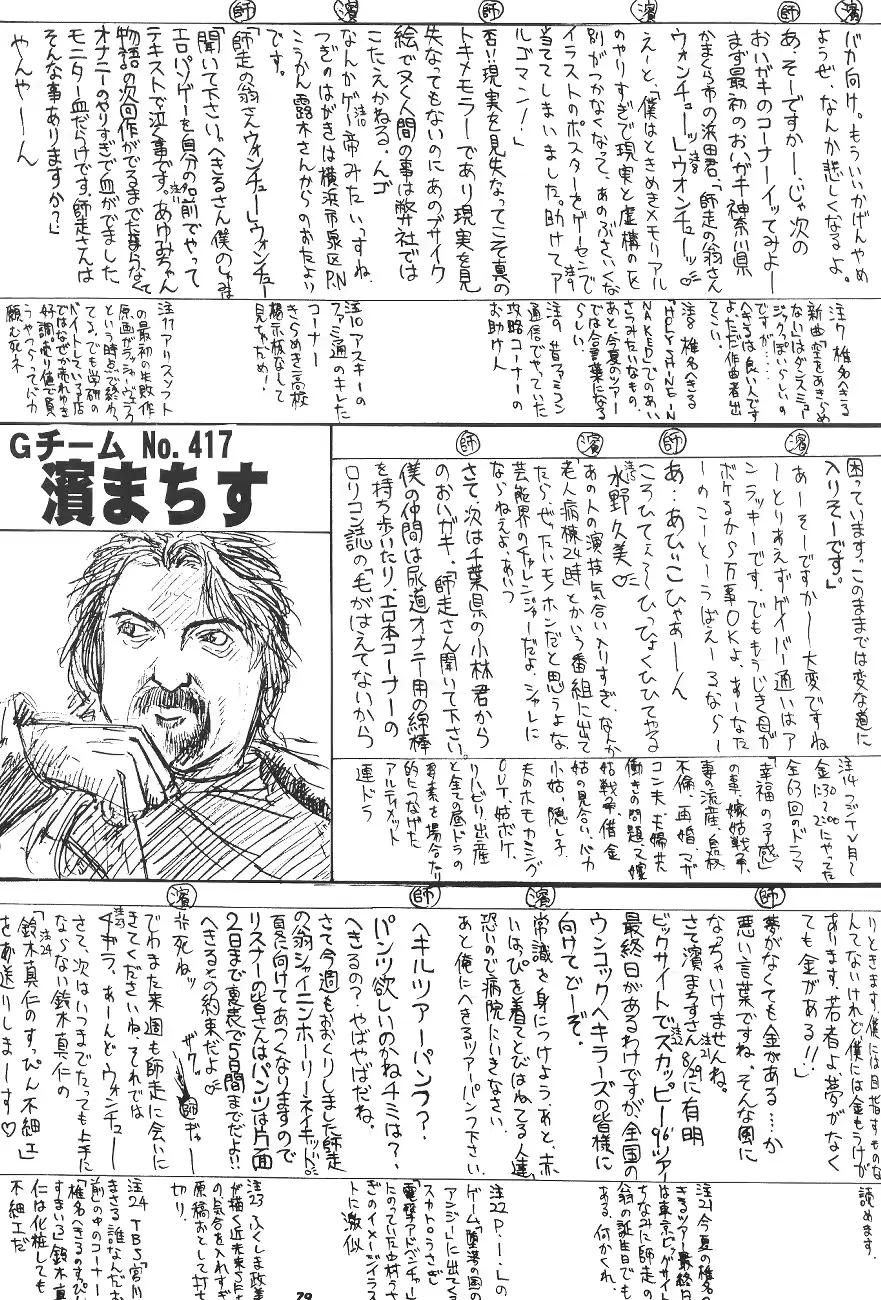 濱
師
濱
師
濱
師
バカ向け。もういいかげんやめ
ようぜ、なんか悲しくなるよ。
あっそーですかー、じゃ次の
おいガキのコーナーイッてみよー
まず最初のおいガキ神奈川県
かまくら市の浜田君、「師走の翁さん
ウォンチューッ」ウォンチューッ♡
注8
えーと、「僕はときめきメモリアル
のやりすぎで現実と虚構のく
別がつかなくなって、あのぶさいくな
イラストのポスターをゲーセンで
注9
当ててしまいました。助けてア
ルゴマン!」
否!!現実を見失なってこそ真の
トキメモラーであり現実を見
失なってもないのにあのブサイク
絵でヌく人間の事は弊社では
こたえかねる、んゴ
なんかゲー帝みたいっすね、
注10
つぎのはがきは横浜市泉区P.N
こうかん露木さんからのおたより
です。
「師走の翁さんウォンチュー」ウォンチュー
「聞いて下さい。へきるさん僕のしゅみは
エロパソゲーを自分の名前でやって
テキストで泣く事です。あゆみちゃん
注11
物語の次回作がでるまでたまらなくて
オナニーのやりすぎで血がでました
モニター血だらけです、師走さんは
そんな事ありますか?」
やんやーーん
注7 椎名へきる
新曲「空をあきらめ
ない」はダンスミュー
ジックっぽいらしいの
ですが……
へきるは良い人です
よ、ただ作曲者出
てこい。
注8 椎名へきる
「HOLY SHINE IN
NAKED」でのあい
さつみたいなもの、
あと今夏のツアー
では合言葉になる
らしい。
注9 昔ファミコン
通信でやっていた
攻略コーナーの
お助け人
注10 アスキーの
ファミ通のキした
コーナー
きらめき高校
掲示板なして
見ちゃだめ!
注11 アリスソフト
の最初の失敗作
原画がラッシャーヴェラク
という時点で終わっ
てる。でも学研の
バイトしている店
ではなぜか売れゆき
好調、売り値で買
うやつらってバカ
願む死ネ
Gチーム No.417
濱まちす
濱
師
濱
師
困っています。このままでは変な道に
入りそーです」
あーそーですかー大変ですね
ーとりあえずゲイバー通いはア
ンラッキーです、でももうじき母が
ボケるから万事OKよ、あーなた
ーのこーとーうばえーるならー
あ…あびいこひゃあーーん
ころひてえょ~ひっひょくひひてやる
注15
水野久美♡
あの人の演技気合い入りすぎ、なんか
「老人病棟24時」とかいう番組に出て
たらぜったいモノホンだと思うよな
芸能界のチャレンジャーだよ、シャレに
ならねえよ、あいつ
さて、次は千葉県の小林君から
のおいガキ、「師走さん聞いて下さい。
僕の仲間は尿道オナニー用の綿棒
を持ち歩いたり、エロ本コーナーの
ロリコン誌の「毛がはえてないから
注14 フジTV月~
金に30~2:00にやってた
全63回のドラマ
「幸福の予感」
の事、嫁姑戦争、
妻の流産、自殺
不倫、再婚、マザ
コン夫、主婦共
働きの問題、又嫁
姑戦争借金
姑の見合い、バカ
小姑、隠し子
夫のホモカミング
OUT、姑ボケ、
リハビリ出産
と全ての昼ドラの
要素を場合たり
的につなげた
アルティメット
連ドラ
師
濱
師
濱
りときます。僕には目指すものな
んてないけれど僕には金もうけが
あります。若者よ、夢がなく
ても金がある!!」
夢がなくても金がある…か
悪い言葉ですね、そんな風に
なっちゃいけませんね。
さて濱まちすさん8/29に有明
注21
ビックサイトでスカッピー96'ツアー
注22
最終日があるわけですが、全国の
ウンコックヘキラーズの皆様に
向けてどーぞ。
常識を身につけよう、あと、赤
いはっぴを着てとびはねてる人達
恐いので病院にいきなさい、
あと俺にへきるツアーパンフ下さい。
ヘキルツアーパンフ?。
パンツ欲しいのかねチミは?、
へきるの?、やばやばだね。
さて今週もおくりしました師走
の翁シャイニンホーリーネイキッド。
夏に向けてあつくなりますので
リスナーの皆さんはパンツは片面
2日まで裏表で5日間までだよ!!
へきるとの約束だよ♡
死ねッ
ザク。
師
ギャー
でわまた来週も師走に会いに
きてくださいね、それでは
注23
チキラ、あーんど ウォンチュー
さて、次はいつまでたっても上手に
ならない鈴木真仁の
注24
「鈴木真仁のすっぴん不細工」
をお送りしまーす♡
読めます。
注21 今夏の椎名へ
きるツアー最終日
は東京ビッグサイト
ちなみに師走の
翁の誕生日でも
ある、何かくれ、
注22 P.I.L.の
ゲーム「堕落の国の
アンジー」に出てくる
スカトロうさぎ
「電撃アドベンチャー」
にのっていた立村うさ
ぎのイメージイラス
トに激似
注23 ふくしま政美
が描く近未来うたた
の気合を入れすぎ
原稿おとして打ち
切り。
注24 TBS「宮川
まさる誰なんだお
前」の中のコーナー
「椎名へきるのすっぴん
すまいる」鈴木真
仁は化粧しても
不細工だ
79